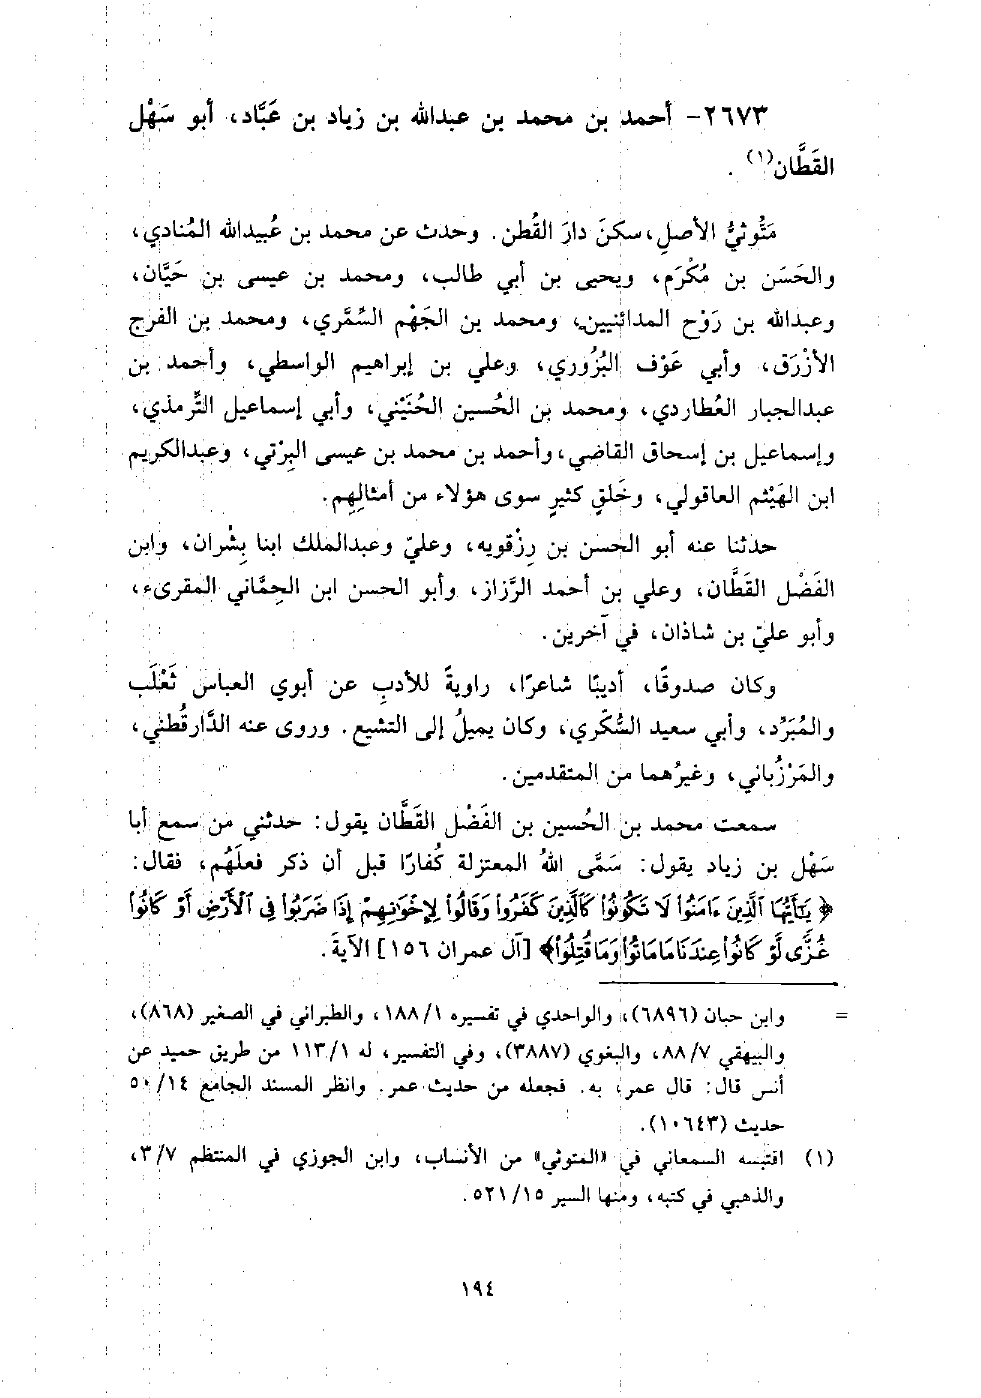 ٢٦٧٣- أحمد بن محمد بن عبدالله بن زياد بن عَبَّاد، أبو سَهْل
القَطَّان(١).
مَتُّوثيُّ الأصلِ، سكنَ دارَ القُطن. وحدث عن محمد بن عُبيدالله المُنادي،
والحَسَن بن مُكْرَم، ويحيى بن أبي طالب، ومحمد بن عيسى بن حَيَّان،
وعبدالله بن رَوْح المدائنيين، ومحمد بن الجَهْم السِّمَّري، ومحمد بن الفرج
الأزْرَق، وأبي عَوْف البُزُوري، وعلي بن إبراهيم الواسطي، وأحمد بن
عبدالجبار العُطاردي، ومحمد بن الحُسين الحُنَيْني، وأبي إسماعيل التِّرمذي،
وإسماعيل بن إسحاق القاضي، وأحمد بن محمد بن عيسى البِرْتي، وعبدالكريم
ابن الهَيْثم العاقولي، وخَلقٍ كثيرٍ سوى هؤلاء من أمثالِهِم.
حدثنا عنه أبو الحسن بن رِزْقويه، وعليّ وعبدالملك ابنا بِشْران، وابن
الفَضْل القَطَّان، وعلي بن أحمد الرَّزاز، وأبو الحسن ابن الحِمَّاني المقرىء،
وأبو عليّ بن شاذان، في آخرين.
وكان صدوقًا، أديبًا شاعرًا، راويةً للأدبِ عن أبوي العباس ثَعْلَب
والمُبَرِّد، وأبي سعيد السُّكّري، وكان يميلُ إلى التشيع. وروى عنه الدَّارقُطني،
والمَرْزُباني، وغيرُهما من المتقدمين.
سمعت محمد بن الحُسين بن الفَضْل القَطَّان يقول: حدثني من سمع أبا
سَهْل بن زياد يقول: سَمَّى اللهُ المعتزلة كُفارًا قبل أن ذكر فعلَهُم، فقال:
﴿ يَٰٓأَيُّهَا ٱلَّذِينَ ءَامَنُوا۟ لَا تَكُونُوا۟ كَٱلَّذِينَ كَفَرُوا۟ وَقَالُوا۟ لِإِخْوَٰنِهِمْ إِذَا ضَرَبُوا۟ فِى ٱلْأَرْضِ أَوْ كَانُوا۟
غُزًّى لَّوْ كَانُوا۟ عِندَنَا مَا مَاتُوا۟ وَمَا قُتِلُوا۟﴾ [آل عمران ١٥٦] الآيةَ.
= وابن حبان (٦٨٩٦)، والواحدي في تفسيره ١/ ١٨٨، والطبراني في الصغير (٨٦٨)،
والبيهقي ٧/ ٨٨، والبغوي (٣٨٨٧)، وفي التفسير، له ١/ ١١٣ من طريق حميد عن
أنس قال: قال عمر، به. فجعله من حديث عمر. وانظر المسند الجامع ١٤/ ٥٠
حديث (١٠٦٤٣).
(١) اقتبسه السمعاني في «المتوثي» من الأنساب، وابن الجوزي في المنتظم ٧/ ٣،
والذهبي في كتبه، ومنها السير ١٥/ ٥٢١.
١٩٤